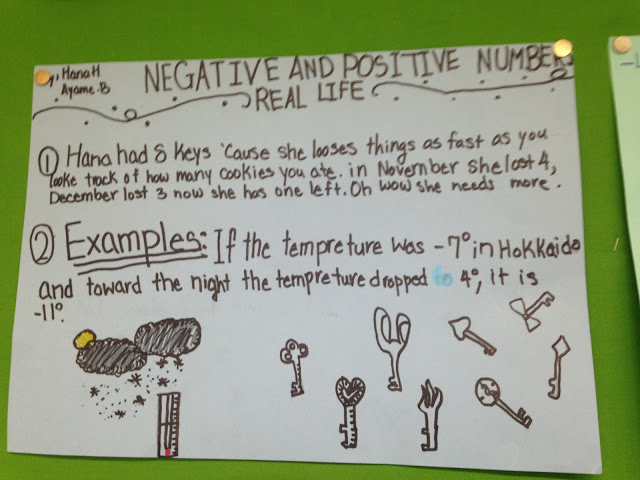 y, Hana H
Ayame.B
NEGATIVE AND POSITIVE NUMBERS
REAL LIFE
① Hana had 8 keys 'cause she looses things as fast as you
looke track of how many cookies you ate. in November she lost 4,
December lost 3 now she has one left. Oh wow she needs more.
② Examples: If the tempreture was -7° in Hokkaido
and toward the night the tempreture dropped to 4°, it is
-11°.